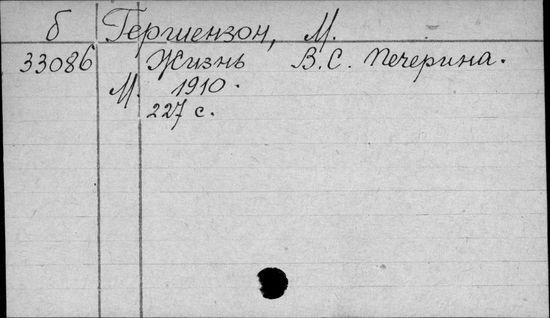 б Гершензон, М.
33086 Жизнь В.С. Печерина.
М. 1910.
227 с.